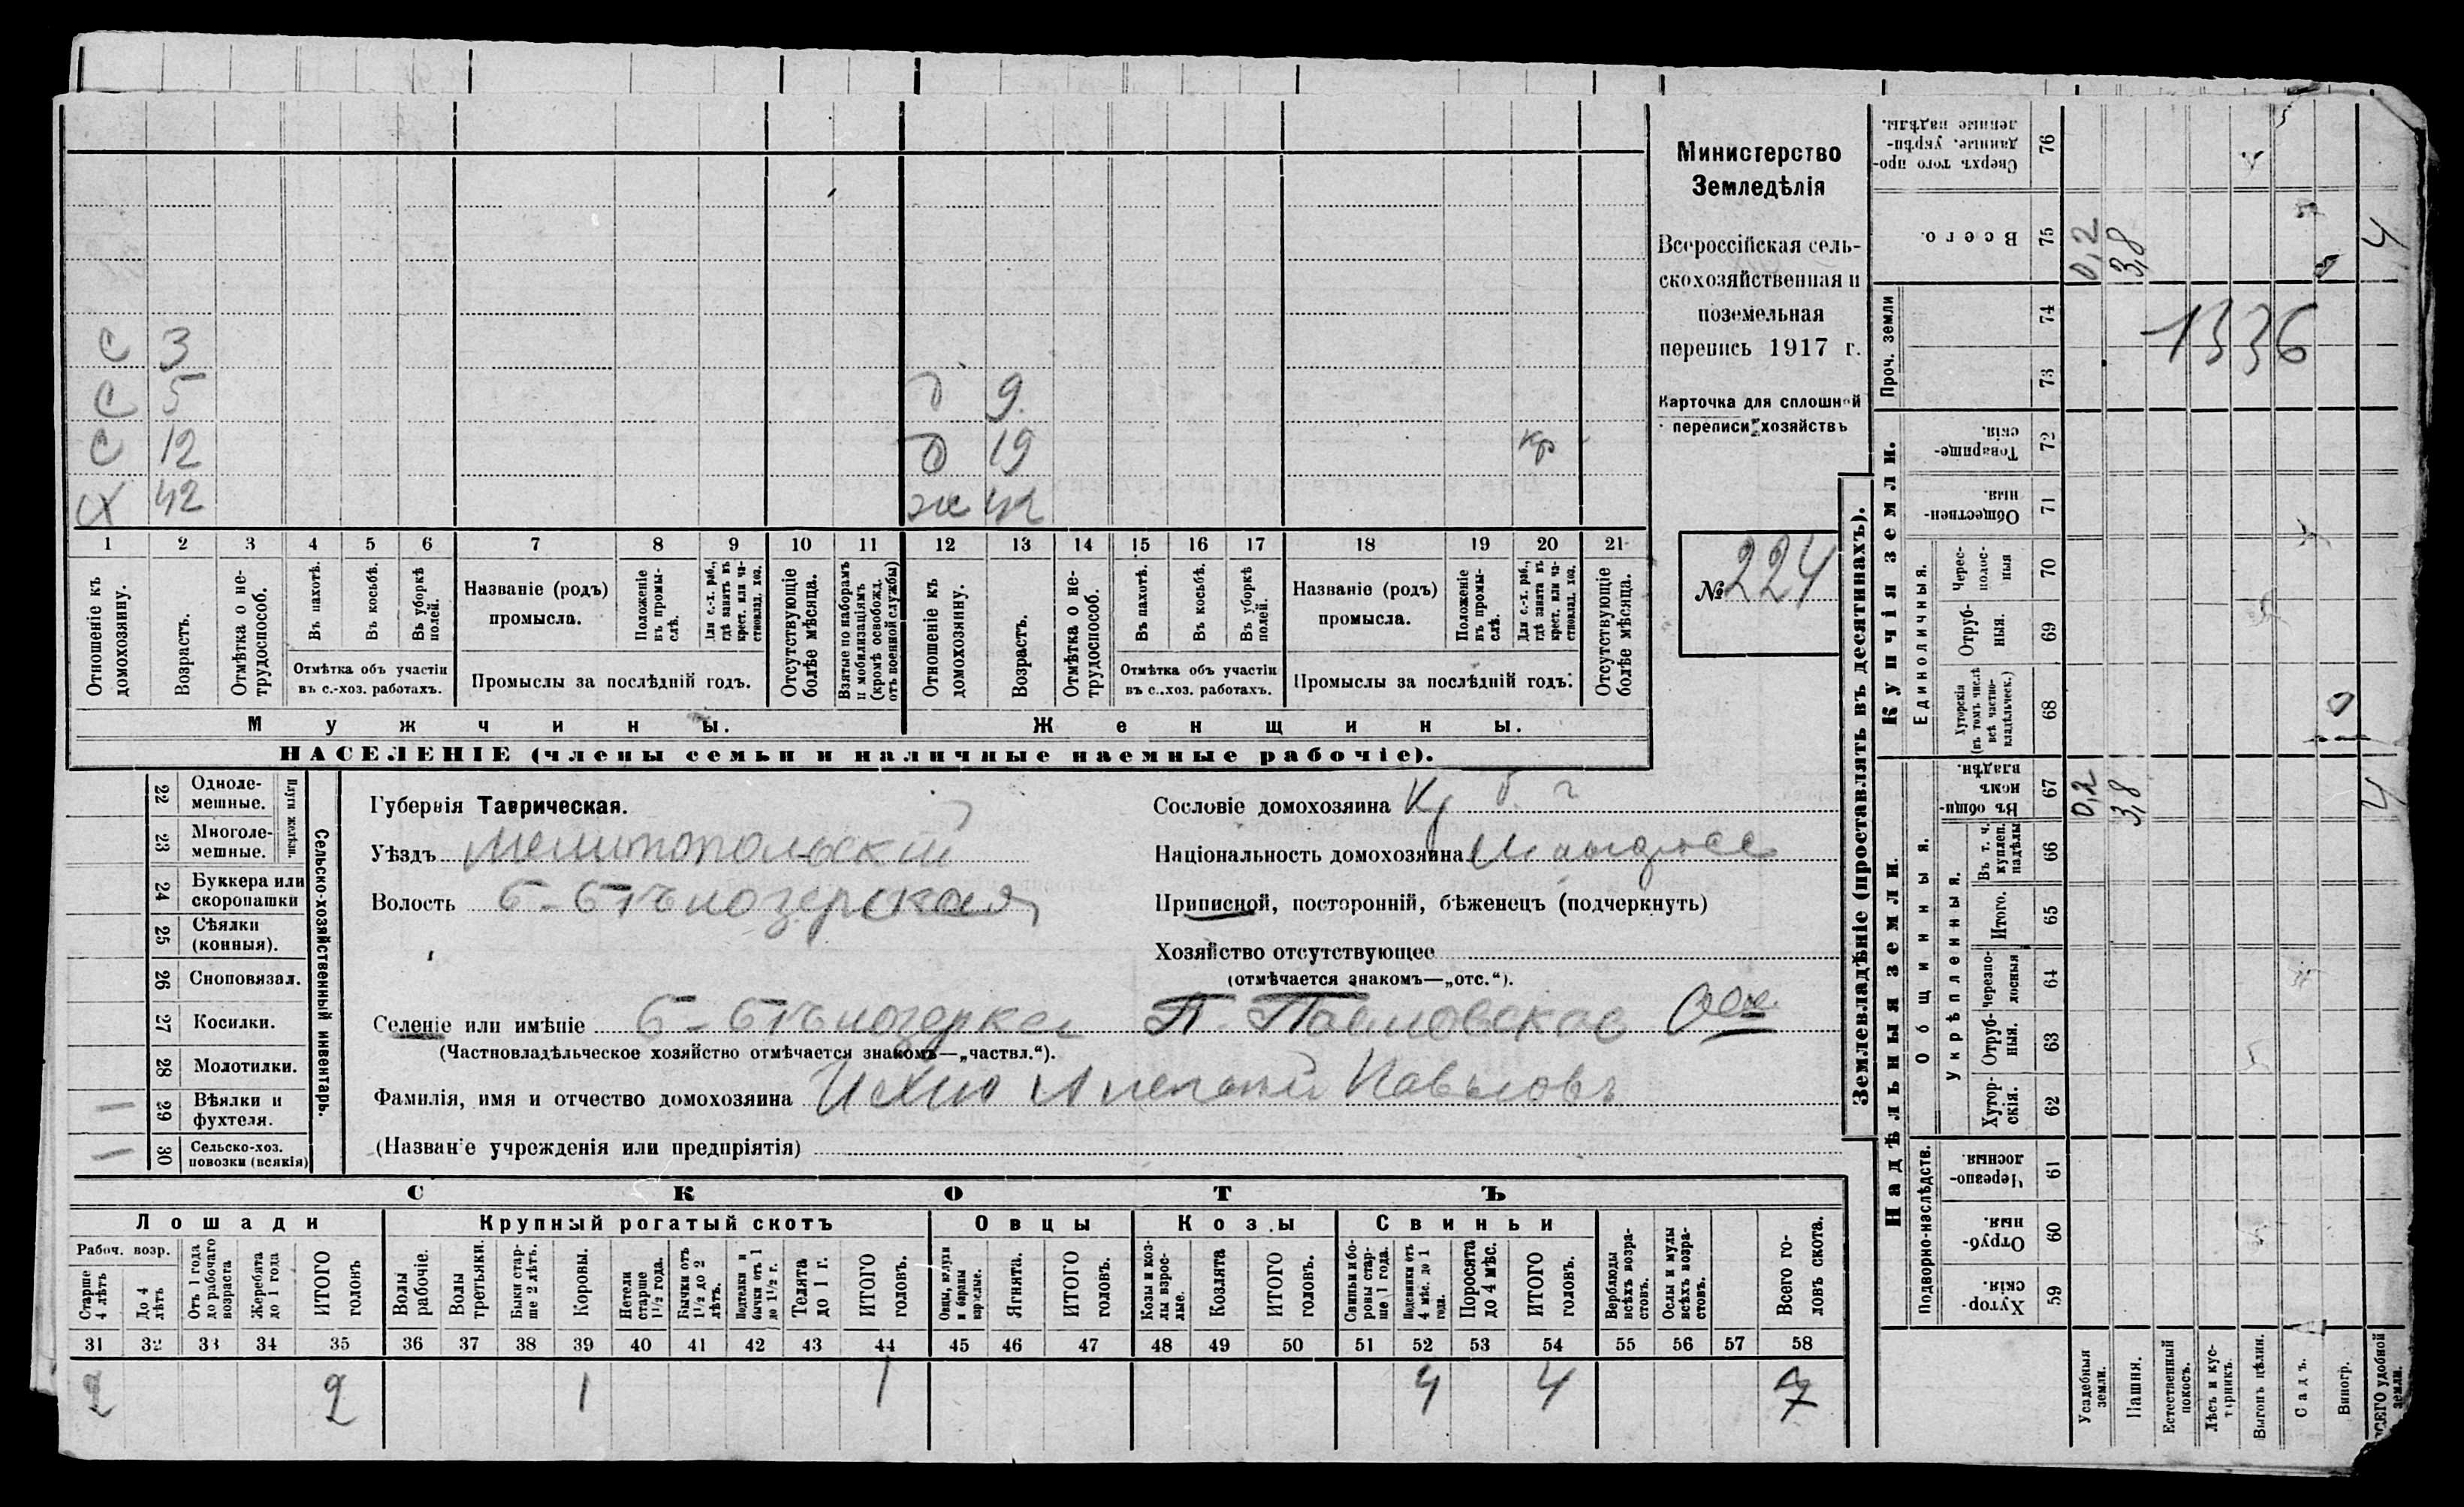 С 3
С 5 д 9
С 12 д 19 кр
Х 42 ж 42
1 2 3 4 5 6 7 8 9 10 11 12 13 14 15 16 17 18 19 20 21
Отношеніе къ домохозяину.
Возрастъ.
Отмѣтка о не-трудоспособ.
Въ пахотѣ.
Въ косьбѣ.
Въ уборкѣ полей.
Отмѣтка объ участіи
въ с.-хоз. работахъ.
Названіе (родъ)
промысла.
Положеніе въ промы-слѣ.
Для с.-х. раб., гдѣ занятъ въ крест. или ча-стновлад. хоз.
Промыслы за послѣдній годъ.
Отсутствующіе болѣе мѣсяца.
Взятые по наборамъ и мобилизаціямъ (кромѣ освобожд. отъ военной службы)
Отношеніе къ домохозяину.
Возрастъ.
Отмѣтка о не-трудоспособ.
Въ пахотѣ.
Въ косьбѣ.
Въ уборкѣ полей.
Отмѣтка объ участіи
въ с..хоз. работахъ.
Названіе (родъ)
промысла.
Положеніе въ промы-слѣ.
Для с.-х. раб., гдѣ занята въ крест. или ча-стновлад. хоз.
Промыслы за послѣдній годъ.
Отсутствующіе болѣе мѣсяца.
Мужчины.
Женщины.
НАСЕЛЕНІЕ (члены семьи и наличные наемные рабочіе).
Министерство
Земледѣлія
Всероссійская сель-
скохозяйственная и
поземельная
перепись 1917 г.
Карточка для сплошной
переписи хозяйствъ
№ 224
22 Одноле-мешные.
23 Многоле-мешные.
Плуги желѣзн.
24 Буккера или скоропашки
25 Сѣялки (конныя).
26 Сноповязал.
27 Косилки.
28 Молотилки.
29 Вѣялки и фухтеля.
30 Сельско-хоз. повозки (всякія)
Сельско-хозяйственный инвентарь.
Губернія Таврическая.
Уѣздъ Мелитопольскій
Волость Б-Бѣлозерская
Селеніе или имѣніе Б-Бѣлозерка П. Павловское Общ.
(Частновладѣльческое хозяйство отмѣчается знакомъ—„частвл.“).
Фамилія, имя и отчество домохозяина Алексѣй Павловъ
(Названіе учрежденія или предпріятія)
Сословіе домохозяина Кр
Національность домохозяина
Приписной, посторонній, бѣженецъ (подчеркнуть)
Хозяйство отсутствующее
(отмѣчается знакомъ—„отс.“).
СКОТЪ
Лошади
Крупный рогатый скотъ
Овцы
Козы
Свиньи
Рабоч. возр.
Старше 4 лѣтъ
До 4 лѣтъ
Отъ 1 года до рабочаго возраста
Жеребята до 1 года
ИТОГО головъ
Волы рабочіе.
Волы третьяки.
Быки стар-ше 2 лѣтъ.
Коровы.
Нетели старше 1½ года.
Бычки отъ 1½ до 2 лѣтъ.
Подтелки и бычки отъ 1 до 1½ г.
Телята до 1 г.
ИТОГО головъ.
Овцы, валухи и бараны взрослые.
Ягнята.
ИТОГО головъ.
Козы и коз-лы взрос-лые.
Козлята
ИТОГО головъ.
Свиньи и бо-ровы стар-ше 1 года.
Подсвинки отъ 4 мѣс. до 1 года.
Поросята до 4 мѣс.
ИТОГО головъ.
Верблюды всѣхъ возра-стовъ.
Ослы и мулы всѣхъ возра-стовъ.
Всего го-ловъ скота.
31 32 33 34 35 36 37 38 39 40 41 42 43 44 45 46 47 48 49 50 51 52 53 54 55 56 57 58
2 2 1 1 4 4 7
Землевладѣніе (проставлять въ десятинахъ).
Надѣльныя земли.
Купчія земли.
Проч. земли
Подворно-наслѣдств.
Общинныя.
Укрѣпленныя.
Единоличныя.
Сверхъ того про-данные, укрѣп-ленные надѣлы. 76
Всего. 75 0,2 3,8 4
74
73
1336
Товарище-скія. 72
Обществен-ныя. 71
Черес-полос-ныя 70
Отруб-ныя. 69
Хуторскія (въ томъ числѣ всѣ частно-владѣльческ.) 68
Въ общи-номъ владѣн. 67 0,2 3,8 4
Въ т. ч. куплен. надѣлы 66
Итого. 65
Черезпо-лосныя 64
Отруб-ныя. 63
Хутор-скія. 62
Черезпо-лосныя. 61
Отруб-ныя. 60
Хутор-скія. 59
Усадебныя земли.
Пашня.
Естественный покосъ.
Лѣсъ и кус-тарникъ.
Выгонъ цѣлин.
Садъ.
Виногр.
ВСЕГО удобной земли.